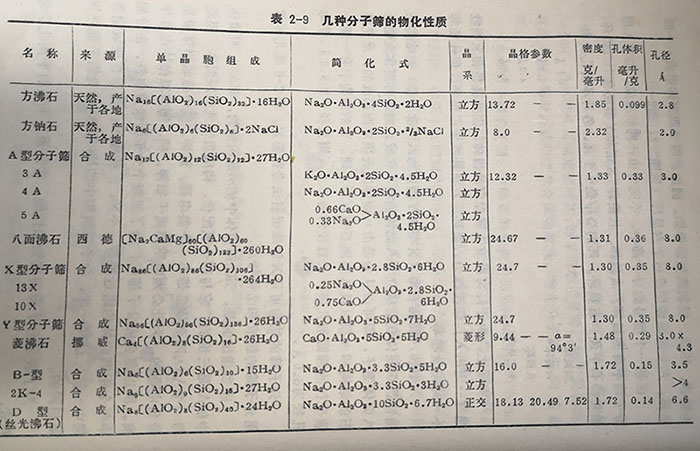 表 2-9 几种分子筛的物化性质
名 称 来 源 单 晶 胞 组 成 简 化 式 晶系 晶格参数 密度 克/毫升 孔体积 毫升/克 孔径 Å
方沸石 天然，产于各地 Na₁₆[(AlO₂)₁₆(SiO₂)₃₂]·16H₂O Na₂O·Al₂O₃·4SiO₂·2H₂O 立方 13.72 — — 1.85 0.099 2.8
方钠石 天然，产于各地 Na₆[(AlO₂)₆(SiO₂)₆]·2NaCl Na₂O·Al₂O₃·2SiO₂·²/₃NaCl 立方 8.0 — — 2.32 2.0
A型分子筛 合 成 Na₁₂[(AlO₂)₁₂(SiO₂)₁₂]·27H₂O
3 A K₂O·Al₂O₃·2SiO₂·4.5H₂O 立方 12.32 — — 1.33 0.33 3.0
4 A Na₂O·Al₂O₃·2SiO₂·4.5H₂O 立方
5 A 0.66CaO 0.33Na₂O>Al₂O₃·2SiO₂·4.5H₂O 立方
八面沸石 西 德 [Na₂CaMg]₆₀[(AlO₂)₆₀
(SiO₂)₁₃₂]·260H₂O 立方 24.67 — — 1.31 0.36 8.0
X型分子筛 合 成 Na₈₆[(AlO₂)₈₆(SiO₂)₁₀₆]
·264H₂O Na₂O·Al₂O₃·2.8SiO₂·6H₂O 立方 24.7 — — 1.30 0.35 8.0
13X 0.25Na₂O
10X 0.75CaO>Al₂O₃·2.8SiO₂·6H₂O
Y型分子筛 合 成 Na₅₆[(AlO₂)₅₆(SiO₂)₁₃₆]·26H₂O Na₂O·Al₂O₃·5SiO₂·7H₂O 立方 24.7 1.30 0.35 8.0
菱沸石 挪 威 Ca₄[(AlO₂)₈(SiO₂)₁₆]·26H₂O CaO·Al₂O₃·5SiO₂·5H₂O 菱形 9.44 — — α=94°3′ 1.48 0.29 3.0×4.3
B-型 合 成 Na₆[(AlO₂)₆(SiO₂)₁₀]·15H₂O Na₂O·Al₂O₃·3.3SiO₂·5H₂O 立方 16.0 — — 1.72 0.15 3.5
2K-4 合 成 Na₉[(AlO₂)₉(SiO₂)₁₅]·27H₂O Na₂O·Al₂O₃·3.3SiO₂·3H₂O 立方 >4
D 型 合 成 Na₈[(AlO₂)₈(SiO₂)₄₀]·24H₂O Na₂O·Al₂O₃·10SiO₂·6.7H₂O 正交 18.13 20.49 7.52 1.72 0.14 6.6
(丝光沸石)